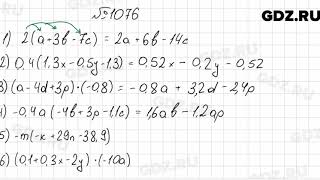 GDZ.RU
№1076
1) 2(a+3b-7c) = 2a+6b-14c
2) 0,4(1,3x-0,5y-1,3) = 0,52x-0,2y-0,52
3) (a-4d+3p)·(-0,8) = -0,8a+3,2d-2,4p
4) -0,4a(-4b+3p-1,1c) = 1,6ab-1,2ap
5) -m(-x+29n-38,9)
6) (0,1+0,3x-2y)·(-10a)